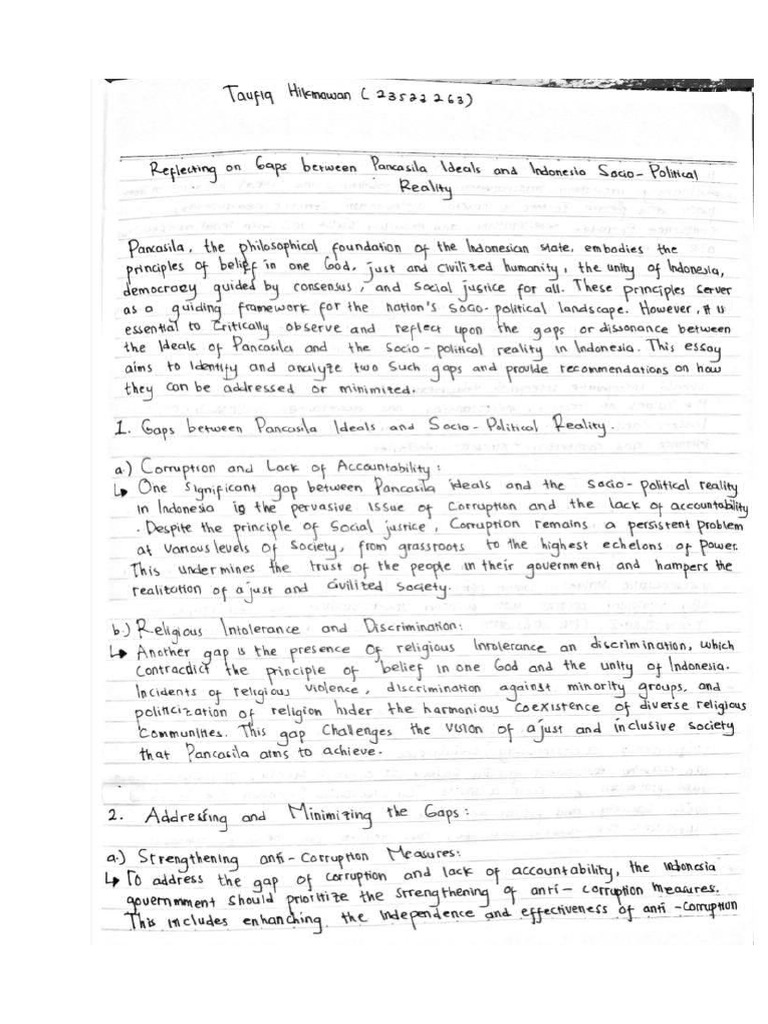 Taufiq Hikmawan (23522263)
Reflecting on Gaps between Pancasila Ideals and Indonesia Socio-Political
Reality
Pancasila, the philosophical foundation of the Indonesian state, embodies the
principles of belief in one God, just and civilized humanity, the unity of Indonesia,
democracy guided by consensus, and social justice for all. These principles server
as a guiding framework for the nation's socio-political landscape. However, it is
essential to critically observe and reflect upon the gaps or dissonance between
the Ideals of Pancasila and the socio-political reality in Indonesia. This essay
aims to Identify and analyze two such gaps and provide recommendations on how
they can be addressed or minimized.
1. Gaps between Pancasila Ideals and Socio-Political Reality.
a.) Corruption and Lack of Accountability:
↳ One significant gap between Pancasila ideals and the socio-political reality
in Indonesia is the pervasive issue of corruption and the lack of accountability
. Despite the principle of social justice, Corruption remains a persistent problem
at various levels of society, from grassroots to the highest echelons of power.
This undermines the trust of the people in their government and hampers the
realization of a just and civilized society.
b.) Religious Intolerance and Discrimination:
↳ Another gap is the presence of religious Intolerance an discrimination, which
contracdict the principle of belief in one God and the unity of Indonesia.
Incidents of religious violence, discrimination against minority groups, and
politicization of religion hider the harmonious coexistence of diverse religious
communities. This gap challenges the vision of a just and inclusive society
that Pancasila aims to achieve.
2. Addressing and Minimizing the Gaps:
a.) Strengthening anti-Corruption Measures:
↳ To address the gap of corruption and lack of accountability, the indonesia
governmment should prioritize the strengthening of anti-corruption measures.
This includes enhanching the independence and effectiveness of anti-corruption